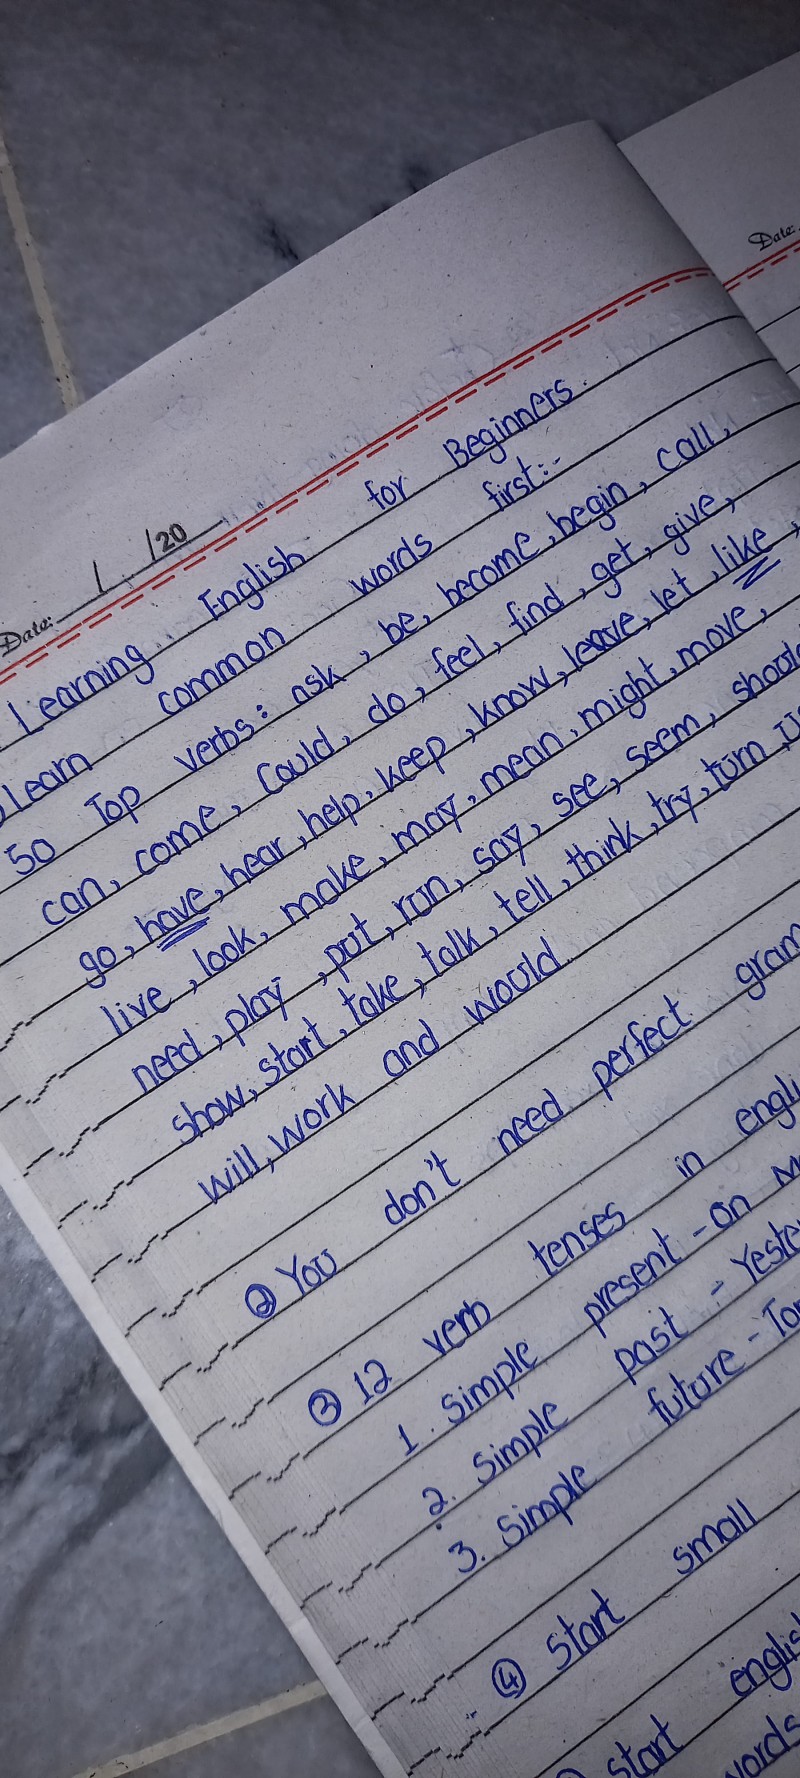 Date:
Date: / /20
Learning English for Beginners.
learn common words first:-
50 Top verbs: ask, be, become, begin, call,
can, come, could, do, feel, find, get, give,
go, have, hear, help, keep, know, leave, let, like,
live, look, make, may, mean, might, move,
need, play, put, run, say, see, seem,
show, start, take, talk, tell, think, try, turn,
will, work and would.
② You don't need perfect
③ 12 verb tenses in
1. Simple present - on
2. Simple past -
3. Simple future -
④ Start small
start